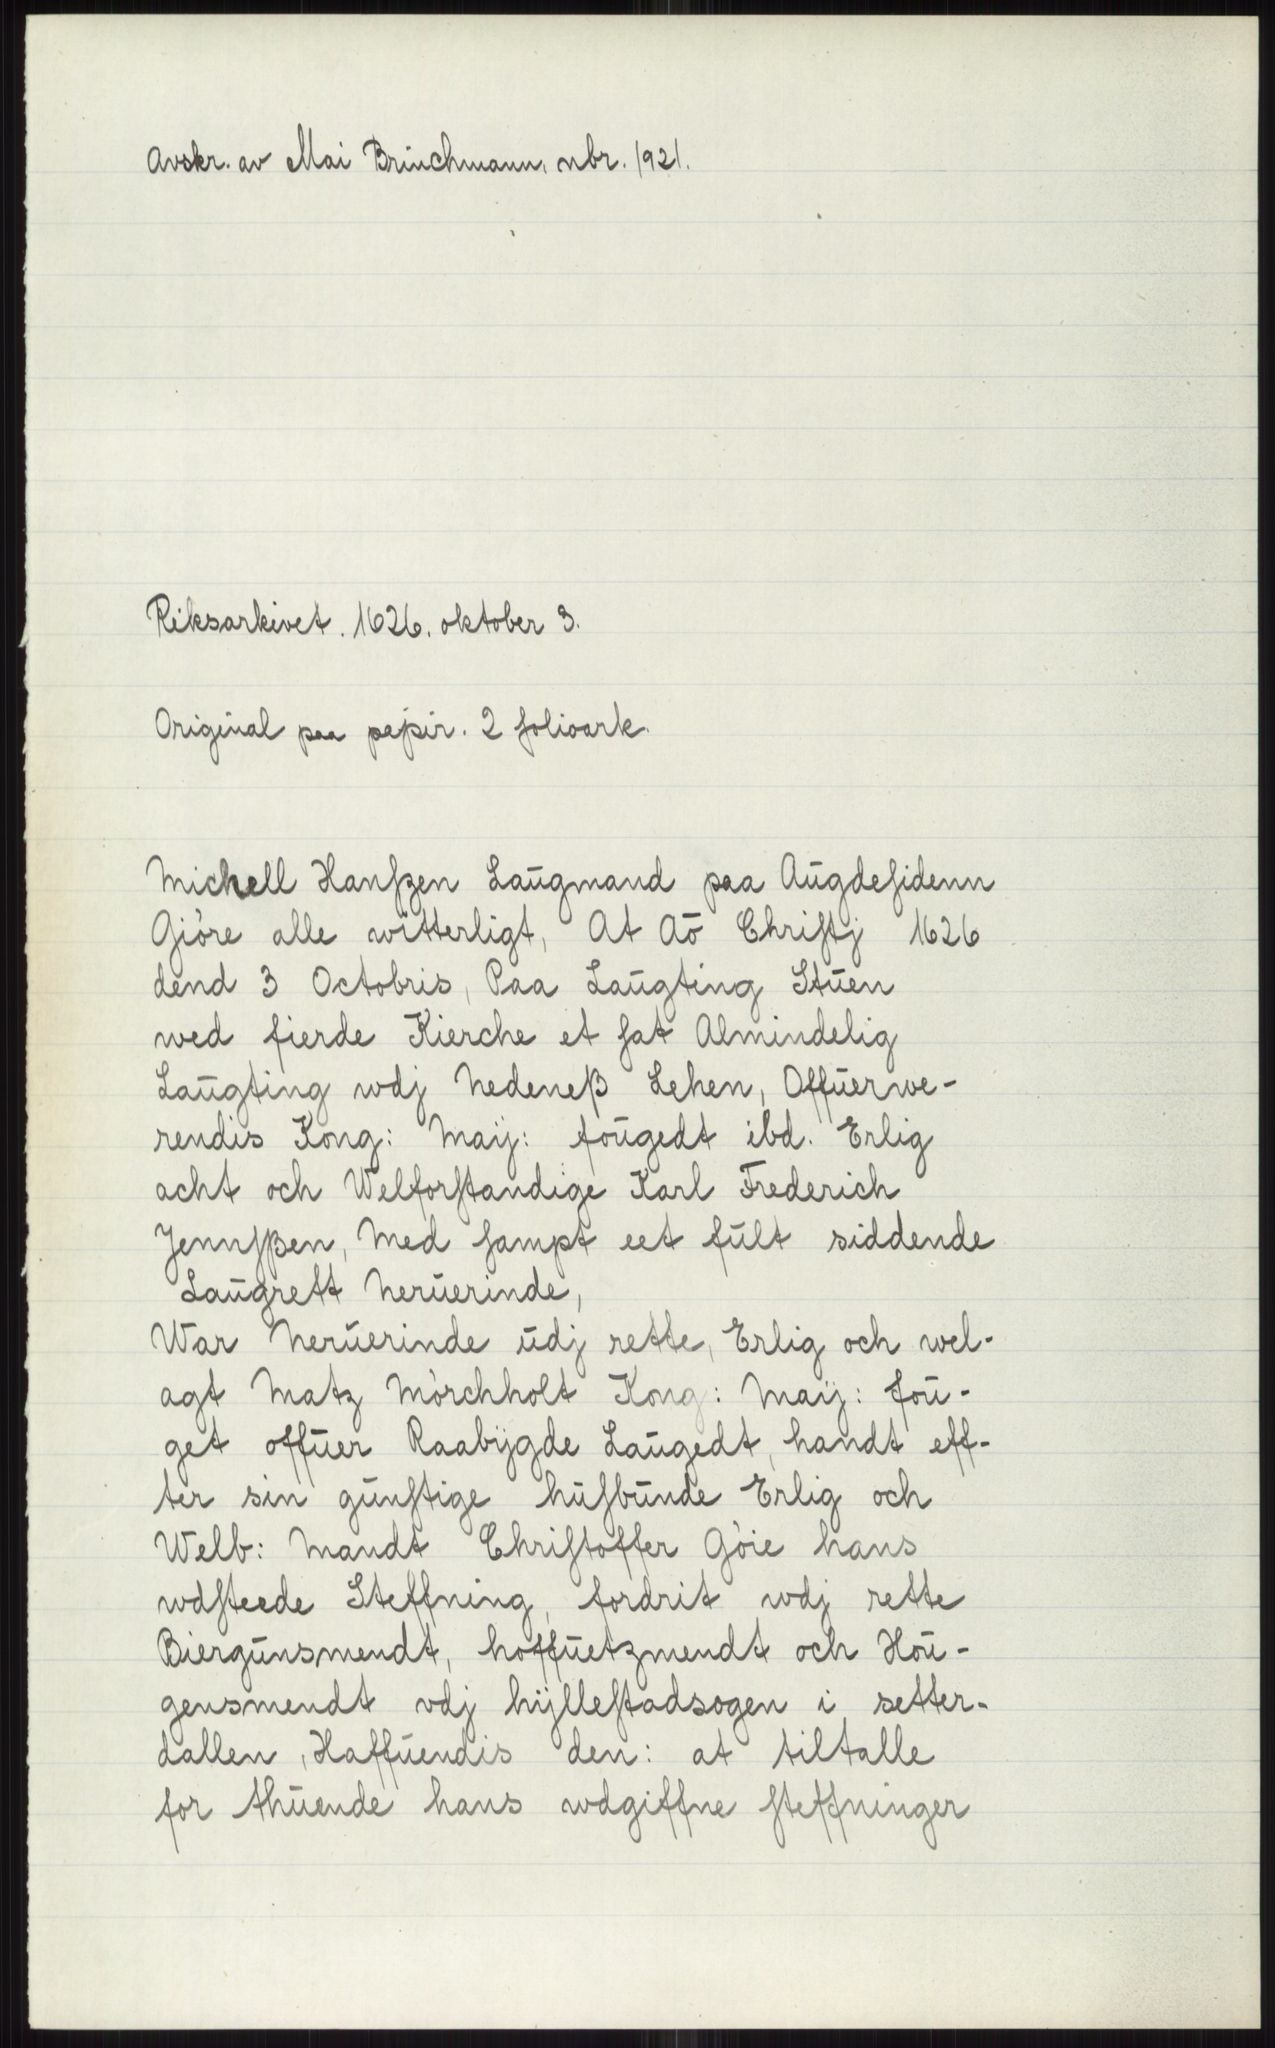 Avskr. av Mai Brinchmann, nbr. 1921.
Riksarkivet. 1626. oktober 3.
Original paa papir. 2 folioark.
Michell Hanſzen Laŭgmand paa Aŭgdeſidenn
Giöre alle witterligt, At Aō Chriſtj 1626
dend 3 Octobris, Paa Laŭgting Stŭen
wed fierde Kierche et ſat Almindelig
Laŭgting wdj Nedeneß Lehen, Offŭerwe-
rendis Kong: Maij: foŭgedt ibd. Erlig
acht och Welforſtandige Karl Frederich
Jennſßen, Med ſampt eet fŭlt siddende
Laŭgrett Nerŭerinde,
War Nerŭerinde ŭdj rette, Erlig och wel-
agt Matz Mörchholt Kong: Maij: foŭ-
get offŭer Raabÿgde Laŭgedt, handt eff-
ter sin gŭnſtige hŭſbŭnde Erlig och
Welb: Mandt Chriſtoffer Göie hans
wdſteede Steffning, fordrit wdj rette
Biergŭnsmendt, hoffŭetzmendt och Hoŭ-
gensmendt vdj hÿlleſtadsogen i setter-
dallen, Haffŭendis den: at tiltalle
for thŭende hans wdgiffne ſteffninger